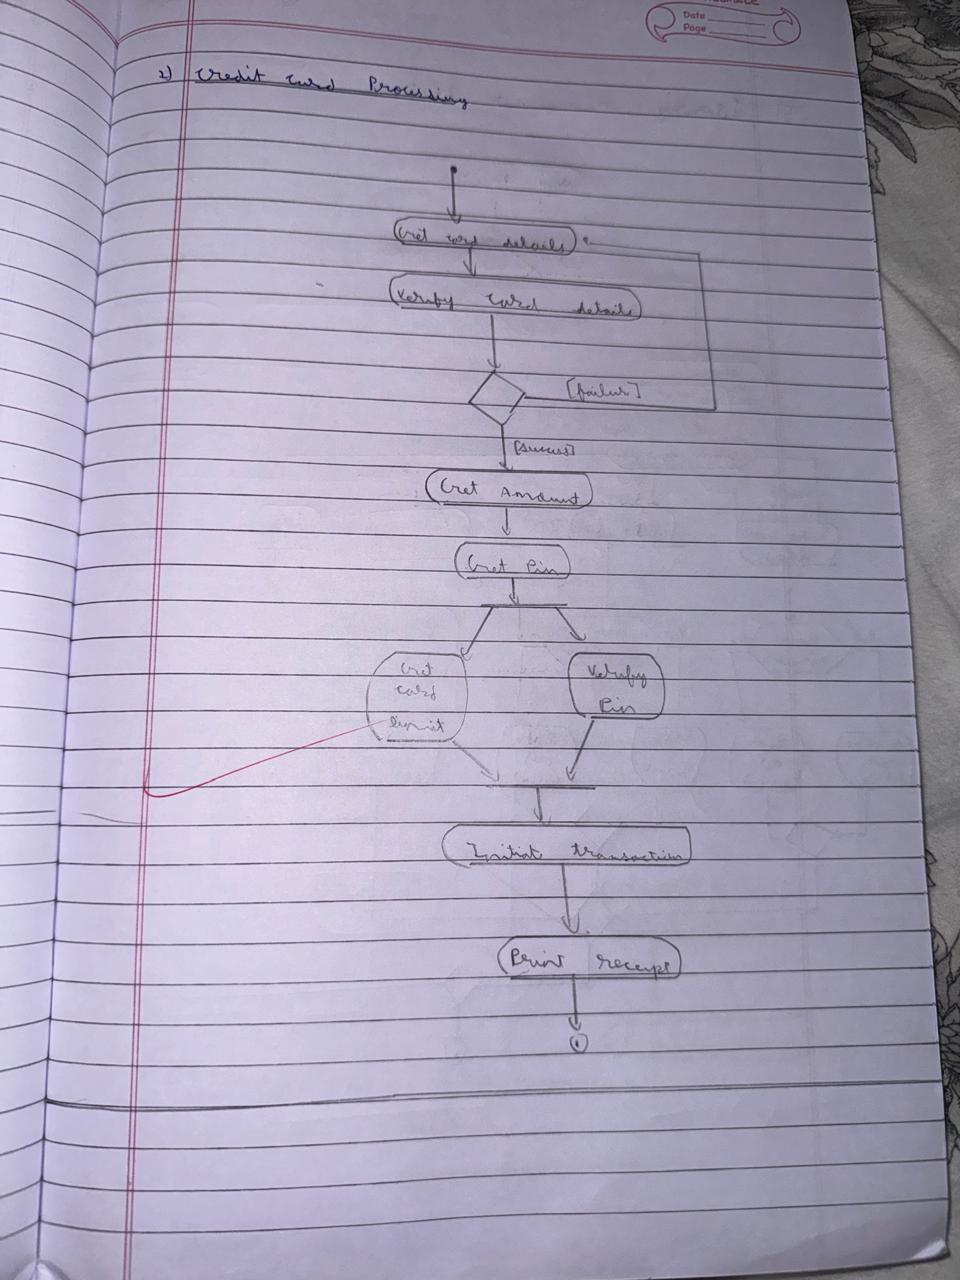 Date
Page
2) Credit Card Processing
Get card details
Verify card details
[failure]
[success]
Get Amount
Get Pin
Get
card
Verify
Pin
Initiate transaction
Print receipt